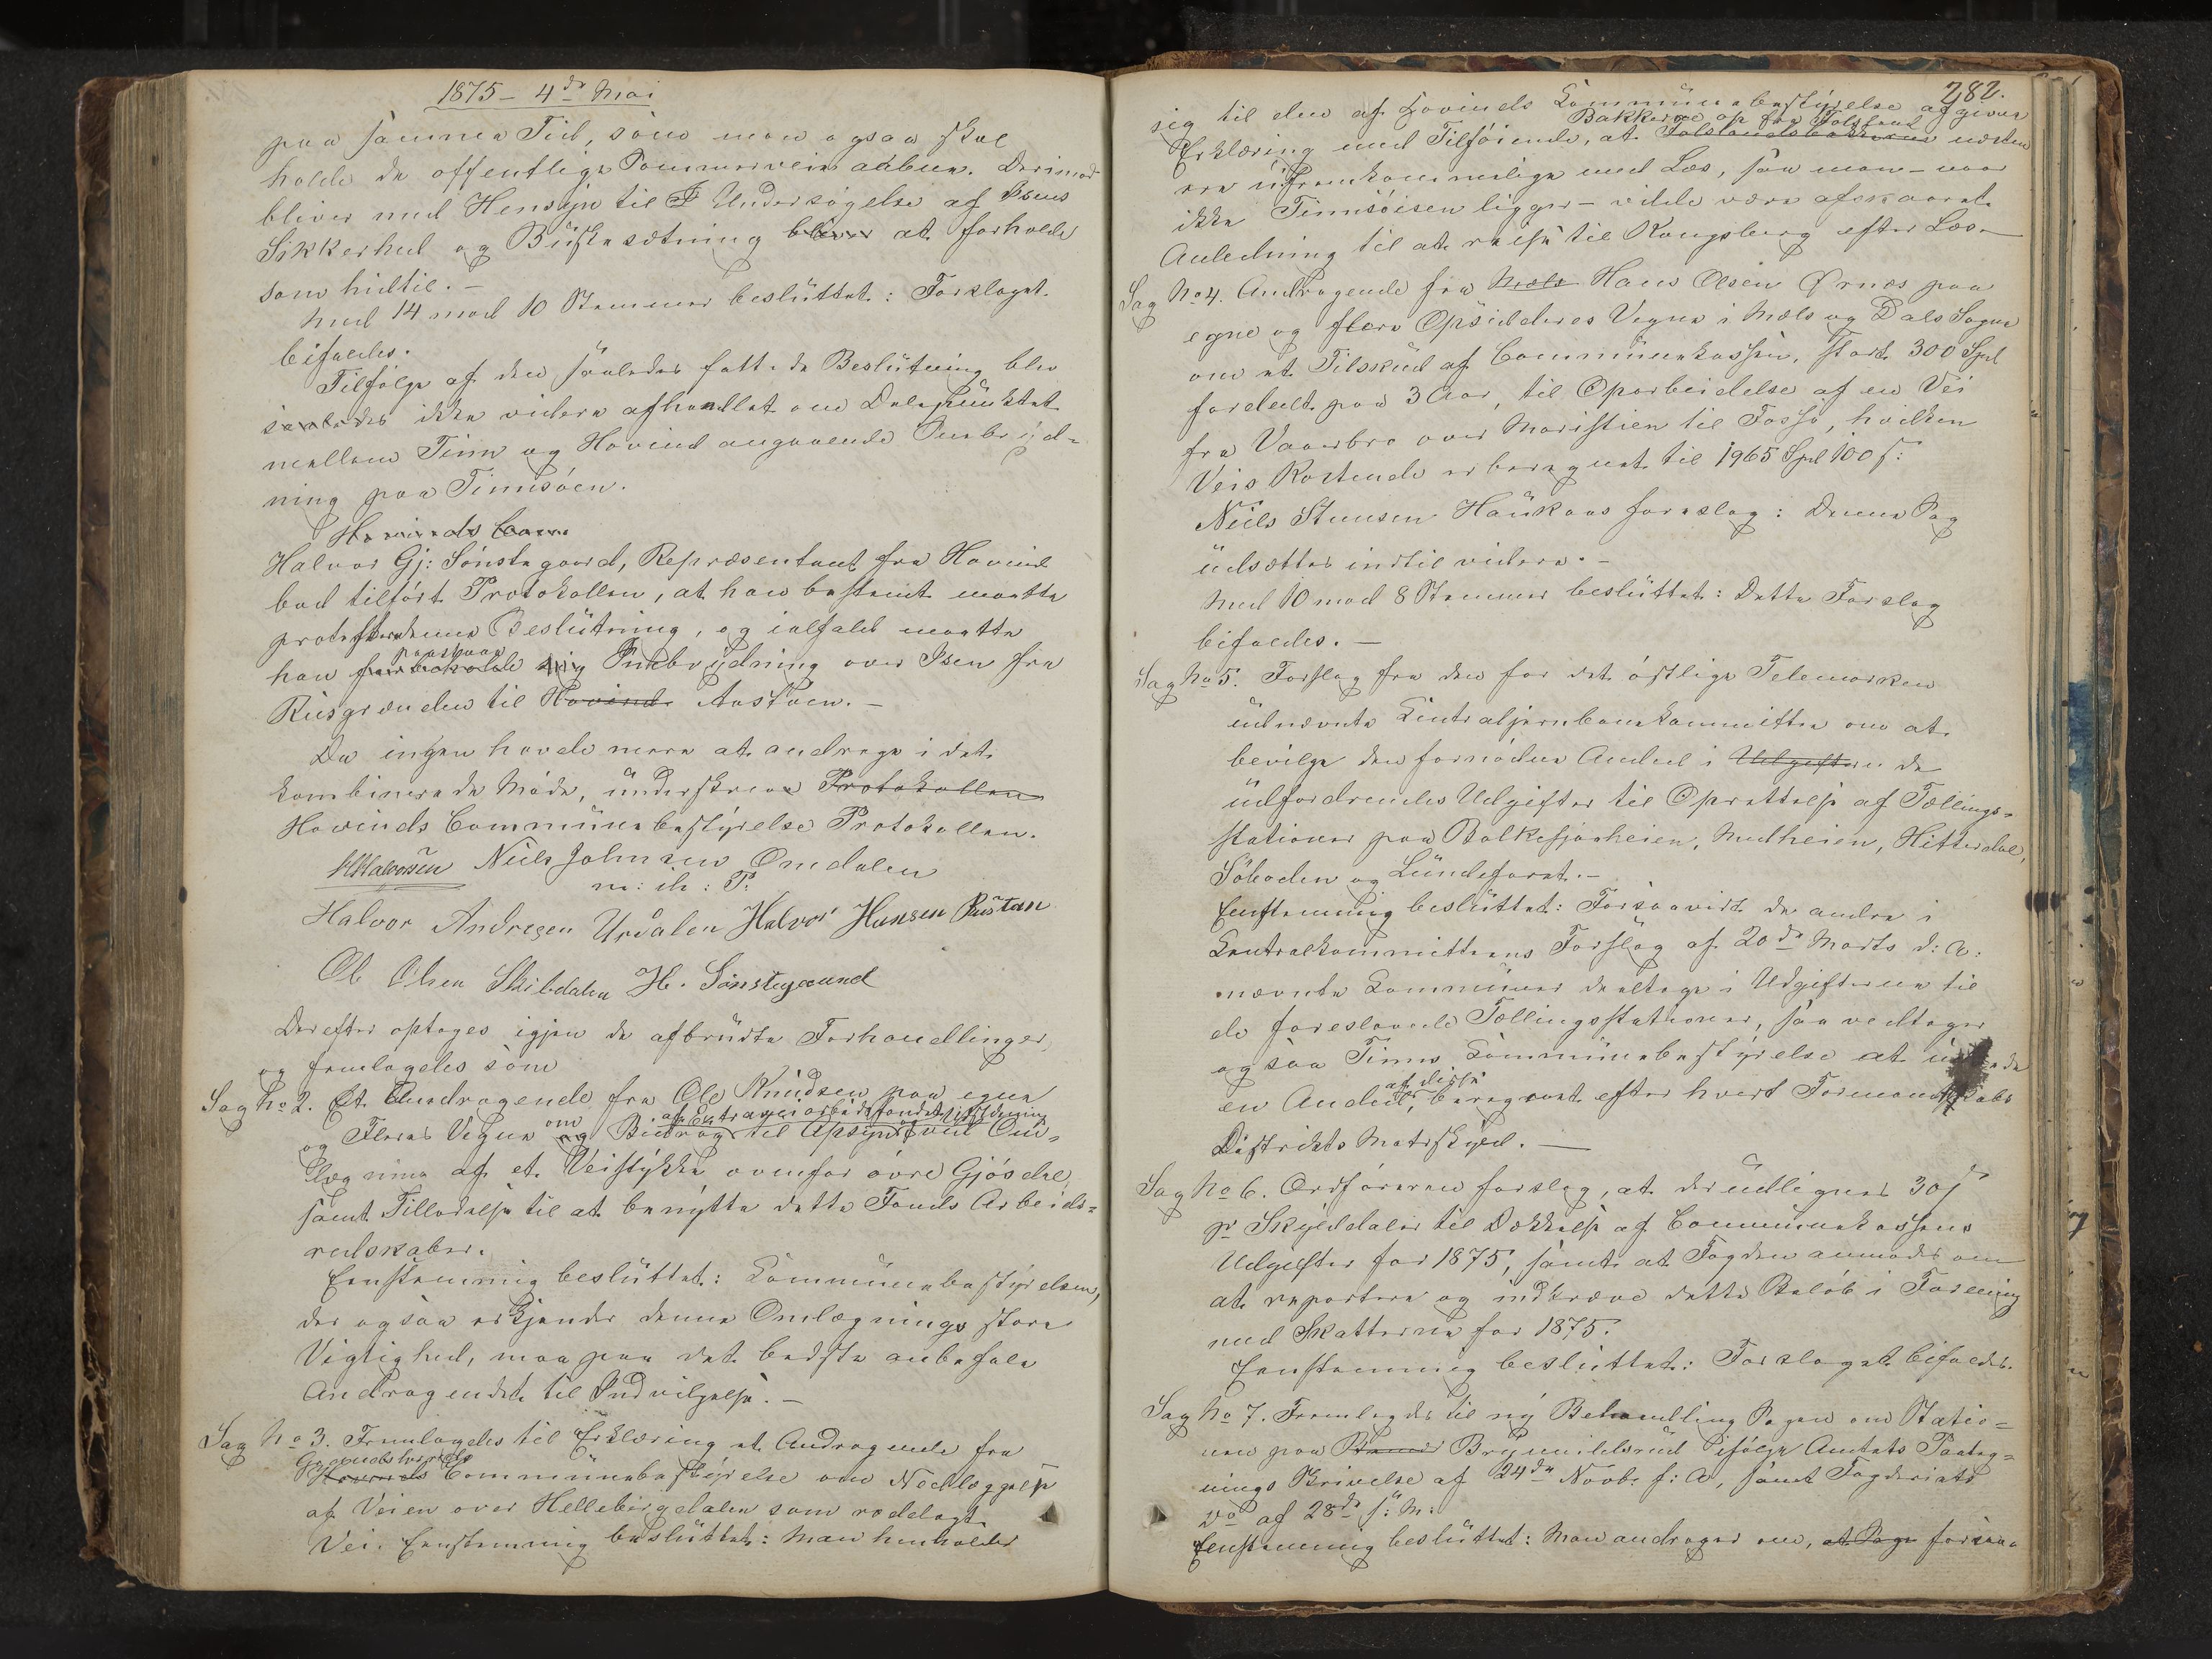 1875 - 4de Mai
paa samme Tid, som man ogsaa skal
holde de offentlige Sommerveie aabne. Derimod
bliver med Hensyn til I Undersøgelse af Isens
Sikkerhed og Buskesætning bliver at forholde
som hidtil. -
Med 14 mod 10 Stemmer besluttet: Forslaget
bifaldes.
Tilfølge af den saaledes fattede Beslutning blev
saaledes ikke videre afhandlet om Delepunktet
mellem Tinn og Hovind angaaende Ombryd-
ning paa Tinnsøen.
Hovinds Com
Halvor Gj: Sønstegaard, Repræsentant fra Hovind
bad tilført Protokollen, at han bestemt maatte
protestere denne Beslutning, og ialfald maatte
paastaa
han forbeholde sig Ombrydning over Isen fra
Rusgrænden til Hovind Aastøen. -
Da ingen havde mere at andrage i det
kombinerede Møde, underskrev Protokollen
Hovinds Communebestyrelse Protokollen.
HHalvorsen Niels Johnsen Omdalen
m: ih: P:
Halvor Andresen Urdalen Halvor Hansen Rustan
Ole Olsen Skibdalen H. Sønstegaard
Derefter optoges igjen de afbrudte Forhandlinger,
og fremlagdes som
Sag No 2. Et Andragende fra Ole Knudsen paa egne
om af Extraveiarbeidsfondet
og Fleres Vegne og Bidrag til Opsyn ved Om-
lægning af et Veistykke ovenfor øvre Gjøsdal,
samt Tilladelse til at benytte dette Fonds Arbeids-
redskaber.
Eenstemmig besluttet: Communebestyrelsen,
der ogsaa erkjender denne Omlægnings store
Vigtighed, maa paa det bedste anbefale
Andragendet til Indvilgelse. -
Sag No 3. Fremlagdes til Erklæring et Andragende fra
Gransherreds
Hovinds Communebestyrelse om Nedlæggelse
af Veien over Hellebergdalen som rodelagt
Vei. Eenstemmig besluttet: Man henholder
282.
sig til den af Hovinds Communebestyrelse afgivne
Bakkerne op fra Følsland
Erklæring med Tilføiende, at Følslandsbakkerne næsten
ere ufremkommelige med Læs, saa man - naar
ikke Tinnsøisen ligger - vilde være afskaaret
Anledning til at reise til Kongsberg efter Læs.
Sag No 4. Andragende fra Mæls Hans Olsen Ørnes paa
egne og flere Opsidderes Vegne i Mæls og Dals Sogne
om et Tilskud af Communekassen, stort 300 Spd
fordelt paa 3 Aar, til Oparbeidelse af en Vei
fra Vaaerbro over Maristien til Fosso, hvilken
Veis Kostende er beregnet til 1965 Spd 100 s:
Niels Steensen Haukaas foreslog: Denne Sag
udsættes indtil videre. -
Med 10 mod 8 Stemmer besluttet: Dette Forslag
bifaldes. -
Sag No 5. Forslag fra den for det østlige Telemarken
udnævnte Centraljernbanekommitte om at
bevilge den fornødne Andel i Udgiften de
udfordrendes Udgifter til Oprettelse af Tællings-
stationer paa Bolkesjøheien, Medheien, Hitterdal,
Søboden og Lundefaret. -
Eenstemmig besluttet: Forsaavidt de andre i
Centralkommitteens Forslag af 20de Marts d: A:
nævnte Communer deeltage i Udgifterne til
de foreslaaede Tællingsstationer, saa vedtager
ogsaa Tinns Communebestyrelse at
af disse
en Andel, beregnet efter hvert Formandskabs
Distrikts Matrskyld. -
Sag No 6. Ordføreren forslog, at der udlignes 30 s
pr Skylddaler til Dækkelse af Communekassens
Udgifter for 1875, samt at Fogden anmodes om
at repartere og indkræve dette Beløb i Forening
med Skatterne for 1875.
Eenstemmig besluttet: Forslaget bifaldes.
Sag No 7. Fremlagdes til ny Behandling Sagen om Statio-
nen paa Brynnildsrud ifølge Amtets Paateg-
nings Skrivelse af 24de Novbr f: A, samt Fogderiets
do af 28de s: M:
Eenstemmig besluttet: Man andrager om, at Sage forsaa